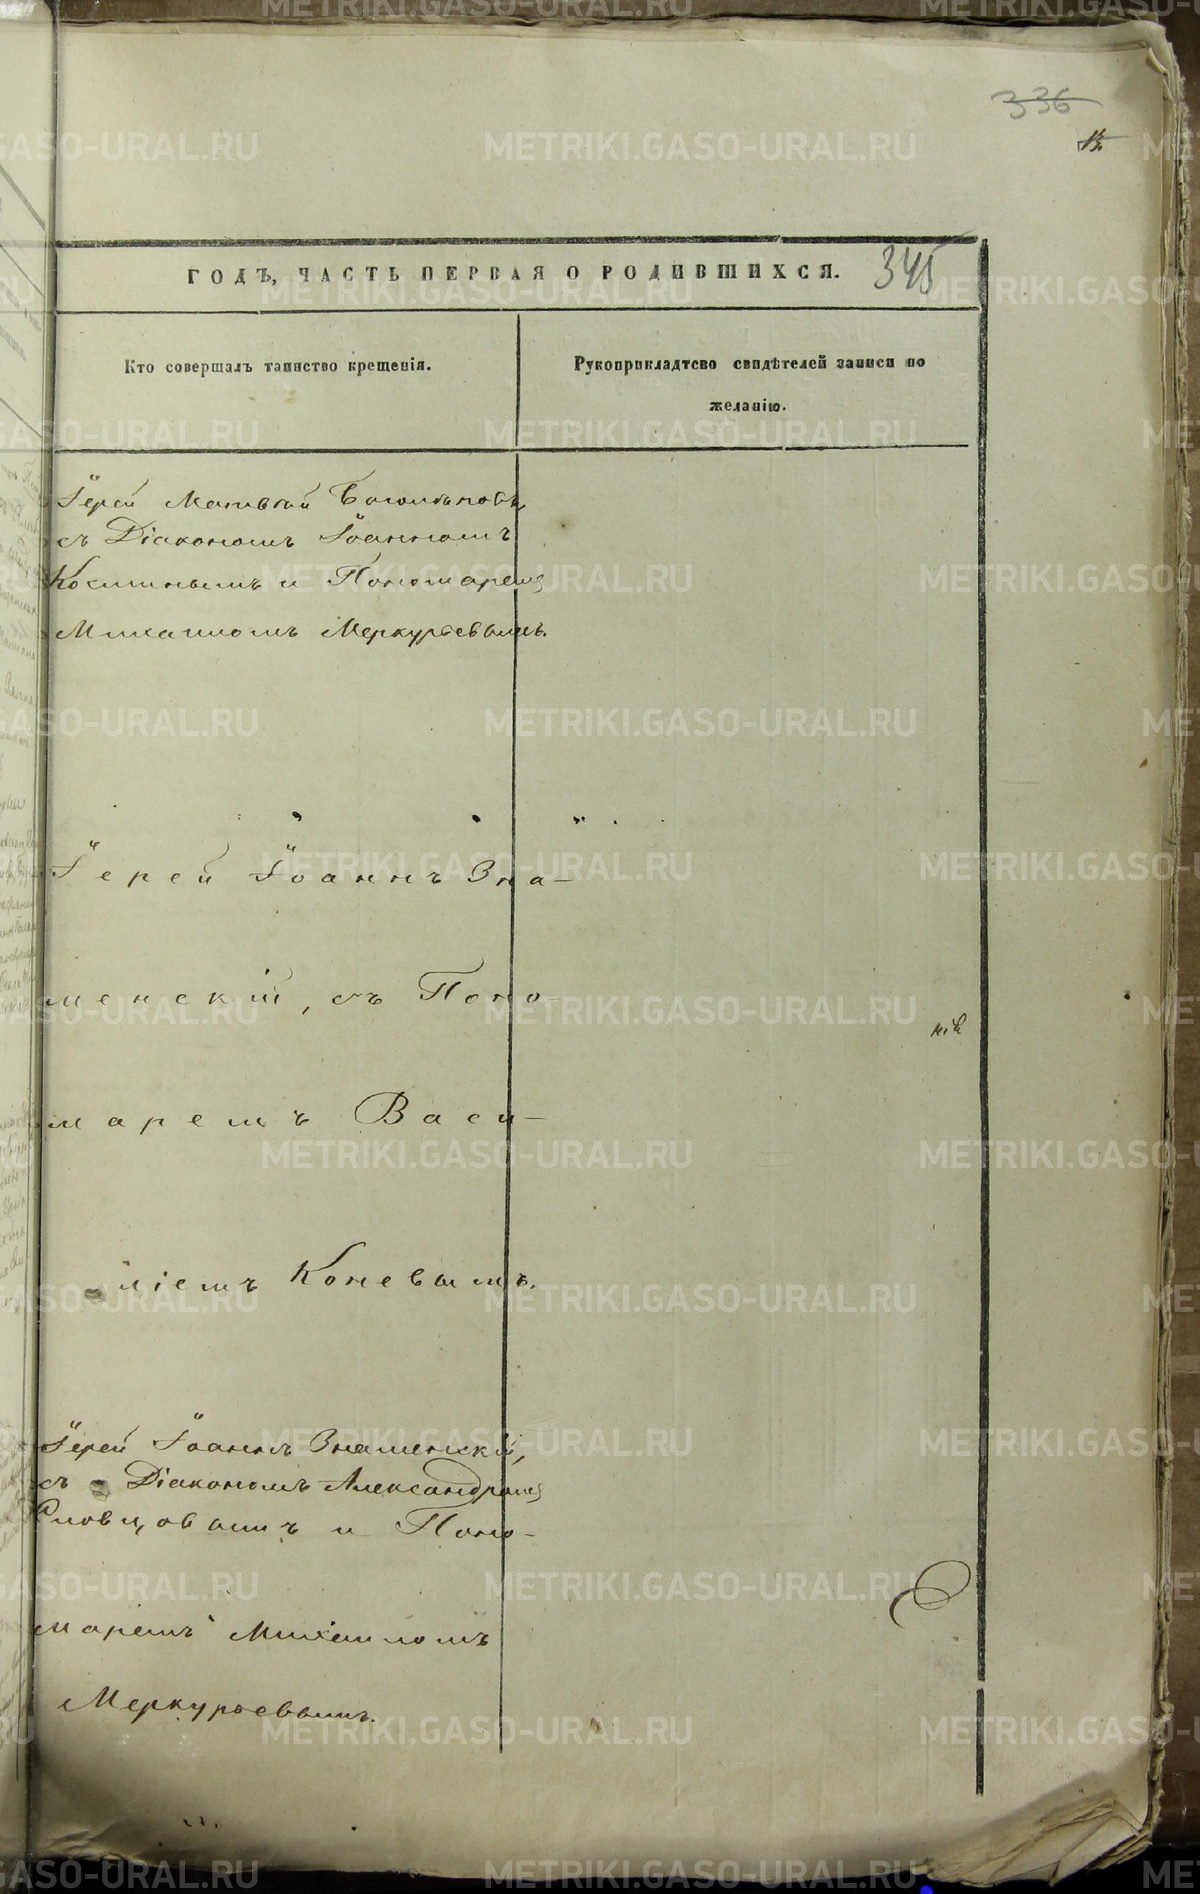 336
345
ГОДЪ, ЧАСТЬ ПЕРВАЯ О РОДИВШИХСЯ.
Кто совершалъ таинство крещенія.
Рукоприкладтсво свидѣтелей записи по
желанію.
Іерей Матвѣй
съ Діакономъ Іоанномъ
Косминымъ и Пономаремъ
Михаиломъ Меркурьевымъ.
Іерей Іоаннъ Зна-
менскій, съ Поно-
маремъ Васи-
ліемъ Коневымъ.
Іерей Іоаннъ Знаменскій,
съ Діакономъ Александромъ
Словцовымъ и Поно-
маремъ Михаиломъ
Меркурьевымъ.
METRIKI.GASO-URAL.RU